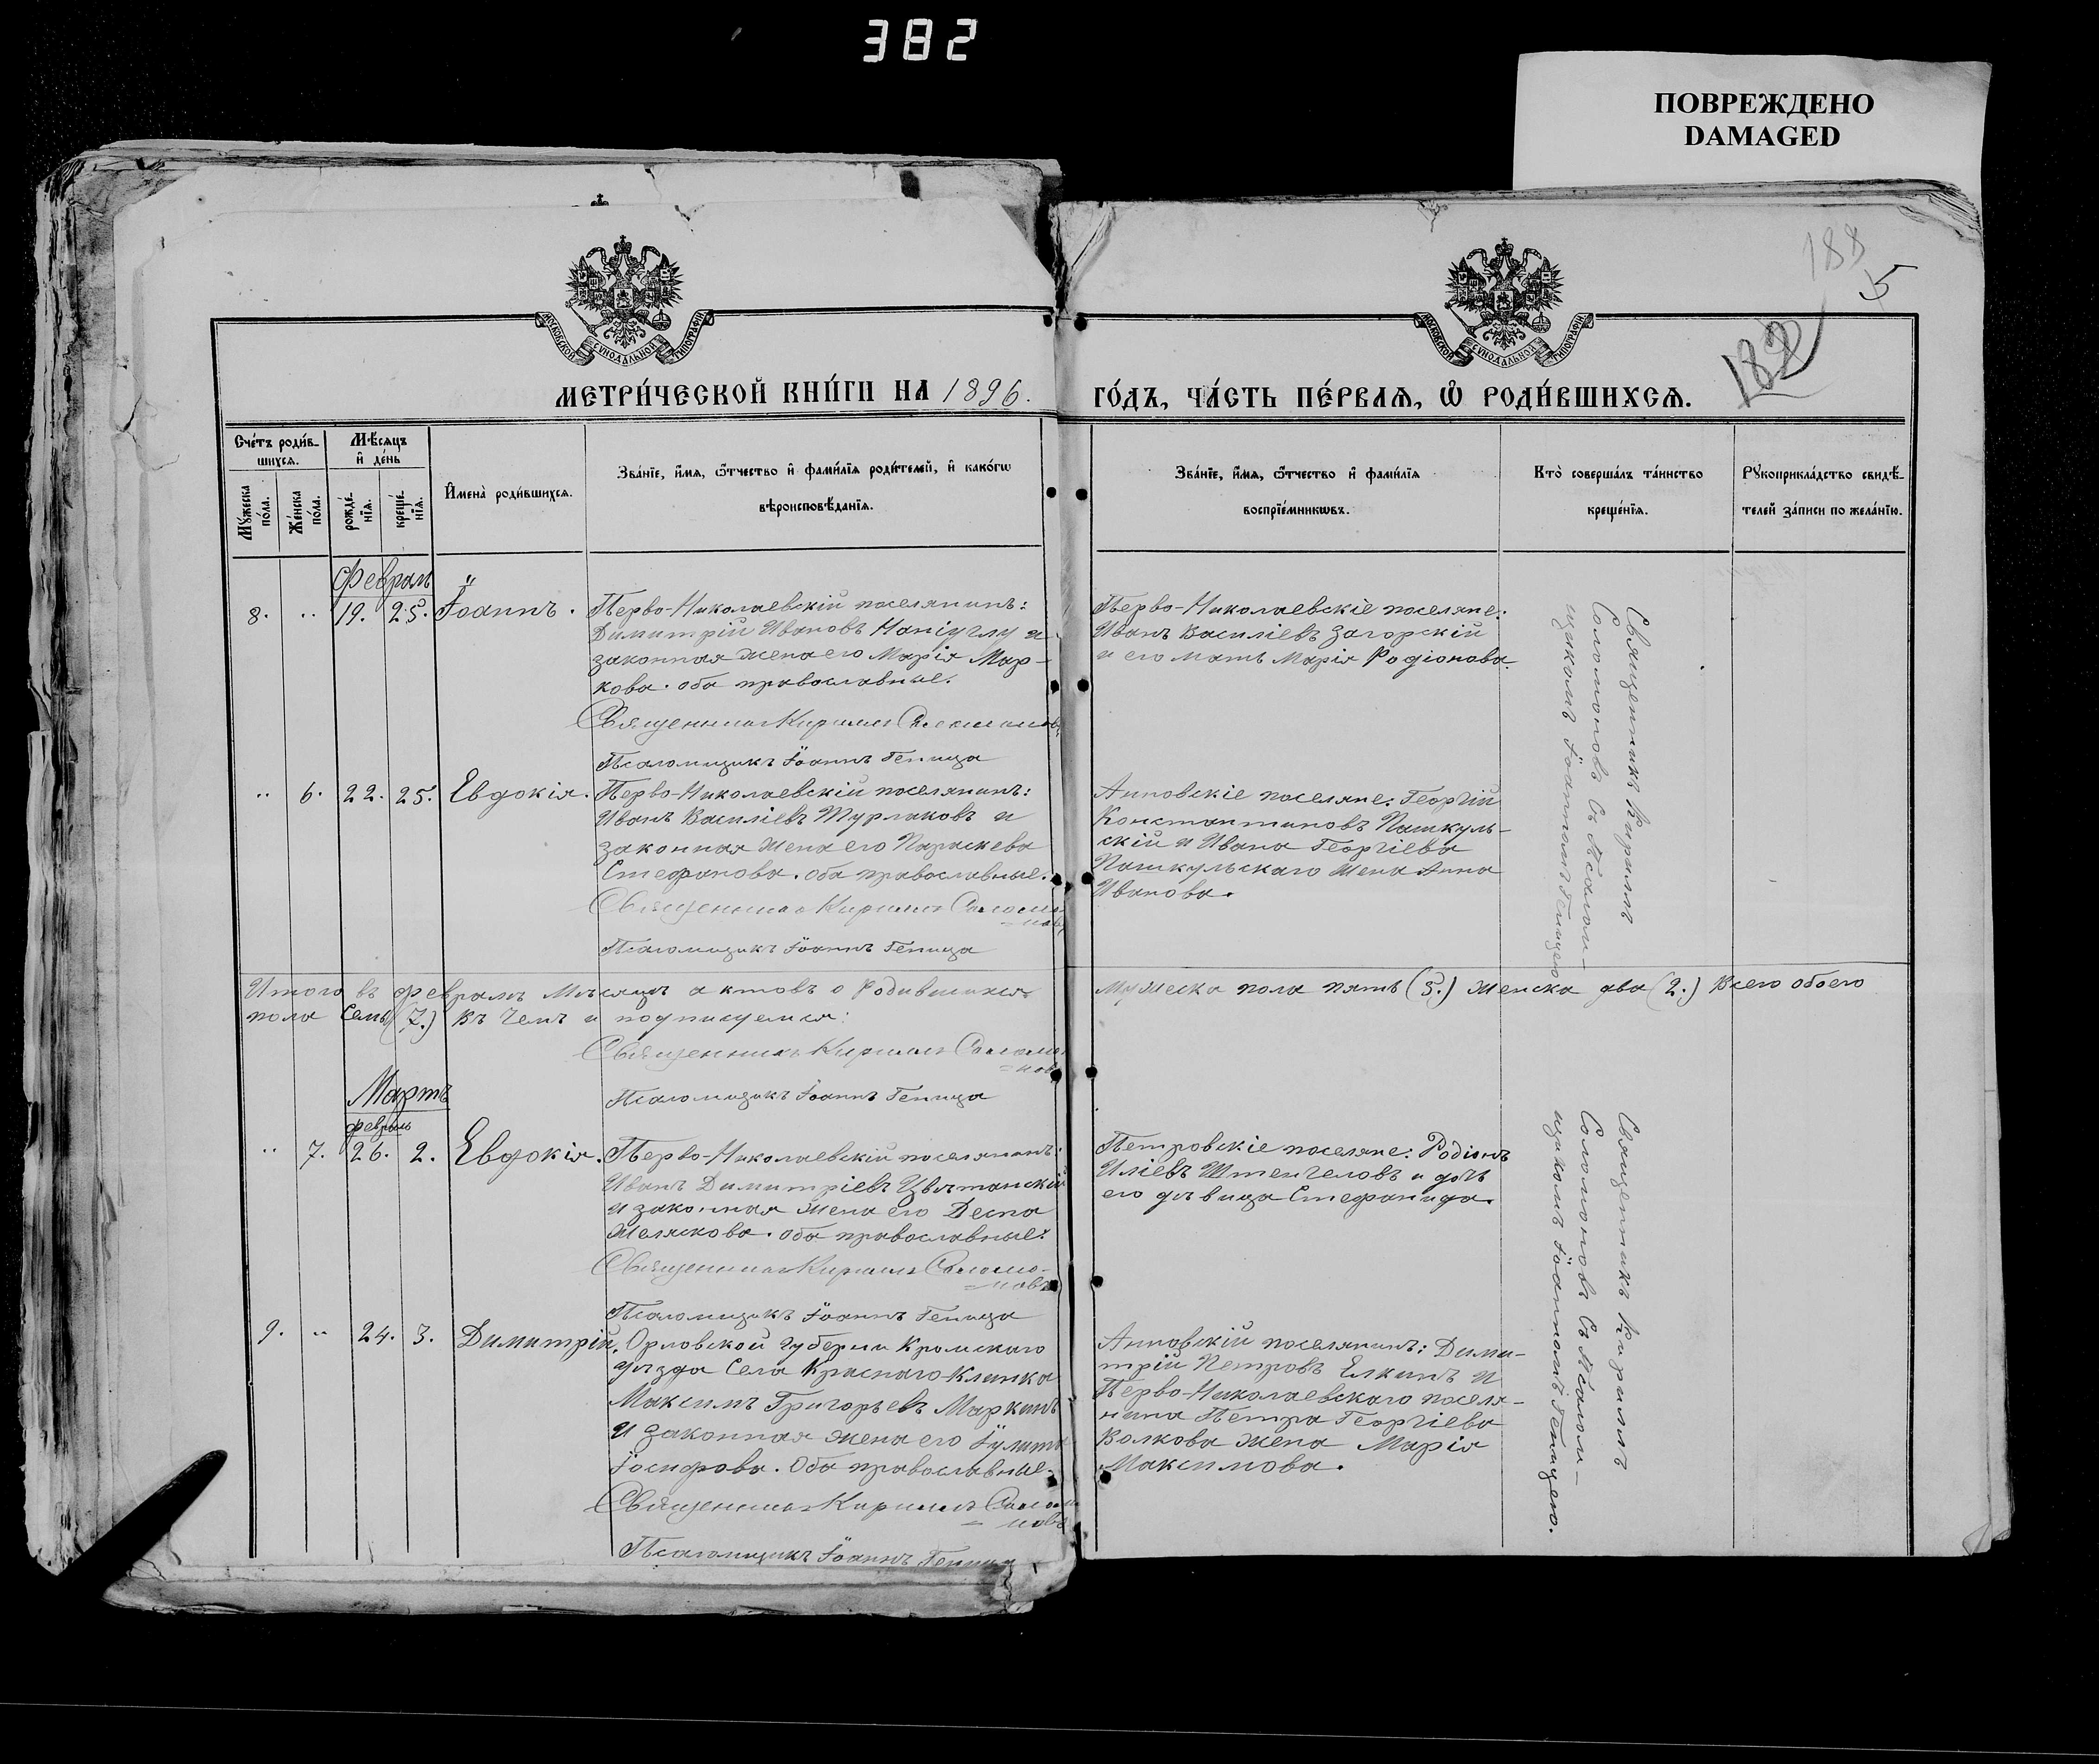 382
ПОВРЕЖДЕНО
DAMAGED
188
5
182
МОСКОВСКОЙ СѴНОДАЛЬНОЙ ТИПОГРАФІИ
МОСКОВСКОЙ СѴНОДАЛЬНОЙ ТИПОГРАФІИ
МЕТРИ́ЧЕСКОЙ КНИ́ГИ НА 1896. ГО́ДЪ, ЧА́СТЬ ПЕ́РВАѦ, Ѡ РОДИ́ВШИХСѦ.
Сче́тъ роди́в-
шихсѧ.
Мѣ́сѧцъ
и҆ де́нь
Мꙋ́жеска
по́ла.
Же́нска
по́ла.
рожде́-
нїѧ.
креще́-
нїѧ.
И҆мена̀ роди́вшихсѧ.
Зва́нїе, и҆́мѧ, ѻ҆́тчество и҆ фамі́лїѧ роди́телей, и҆ како́гѡ
вѣроисповѣ́данїѧ.
Зва́нїе, и҆́мѧ, ѻ҆́тчество и҆ фамі́лїѧ
воспрїе́мникѡвъ.
Кто̀ соверша́лъ та́инство
креще́нїѧ.
Рꙋкоприкла́дство свидѣ́-
телей за́писи по жела́нїю.
Февраль
8. „ 19. 25. Іоаннъ.
Перво-Николаевскій поселянинъ:
Димитрій Ивановъ и
законная жена его Марія Мар-
кова. оба православные.
Священникъ Кирилъ Соломоновъ
Псаломщикъ Іоаннъ Геница
Перво-Николаевскіе поселяне:
Иванъ Василіевъ Загорскій
и его мать Марія Родіонова.
Священникъ Кириллъ
Соломоновъ съ Псалом-
щикомъ Іоанномъ Геницею
„ 6. 22. 25. Евдокія.
Перво-Николаевскій поселянинъ:
Иванъ Василіевъ Турлаковъ и
законная жена его Параскева
Стефанова. оба православные.
Священникъ Кирилъ Соломо-
=новъ
Псаломщикъ Іоаннъ Геница
Анновскіе поселяне: Георгій
Константиновъ Пашкуль-
скій и Ивана Георгіева
Пашкульскаго жена Анна
Иванова.
Итого въ февралѣ мѣсяцѣ актовъ о Родившихся мужеска пола пять (5.) женска два (2.) Всего обоего
пола Семь (7.) въ чемъ и подписуемся:
Священникъ Кирилъ Соломо-
=новъ
Псаломщикъ Іоаннъ Геница
Мартъ
февраль
„ 7. 26. 2. Евдокія.
Перво-Николаевскій поселянинъ:
Иванъ Димитріевъ Цвятанскій
и законная жена его Деспа
Желяскова. оба православные.
Священникъ Кирилъ Соломо-
=новъ
Псаломщикъ Іоаннъ Геница
Петровскіе поселяне: Родіонъ
Иліевъ Штенгеловъ и дочь
его дѣвица Стефанида.
Священникъ Кириллъ
Соломоновъ съ Псалом-
щикомъ Іоанномъ Геницею.
9. „ 24. 3. Димитрій.
Орловской губерніи Кромскаго
уѣзда Села Краснаго-Клинка
Максимъ Григорьевъ Маркинъ
и законная жена его Іулита
Іосифова. Оба православные.
Священникъ Кирилъ Соломо
=новъ
Псаломщикъ Іоаннъ Геница
Анновскій поселянинъ: Дими-
трій Петровъ Елкинъ и
Перво-Николаевскаго поселя-
нина Петра Георгіева
Волкова жена Марія
Максимова.